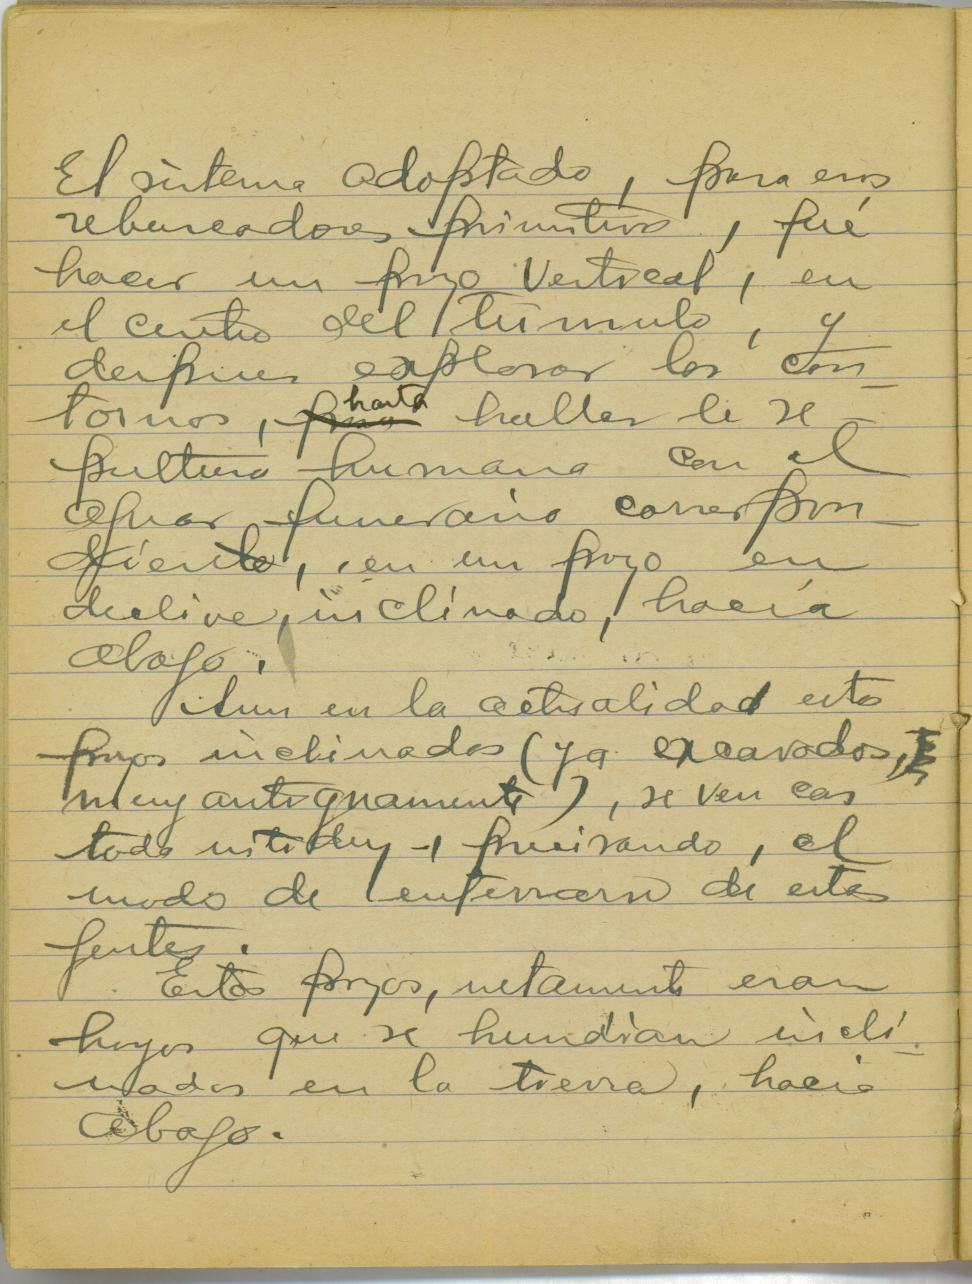 El sistema adoptado, para esos
rebuscadores primitivos, fué
hacer un pozo vertical, en
el centro del túmulo, y
despues explorar los con
tornos, hasta hallar la se
pultura humana con el
ajuar funerario correspon
diente, en un pozo en
declive, inclinado, hacia
abajo.
Aun en la actualidad estos
pozos inclinados (ya excavados,
muy antiguamente), se ven con
toda nitidez, precisando, el
modo de enterrarse de estas
gentes.
Estos pozos, netamente eran
hoyos que se hundían incli
nados en la tierra, hacia
abajo.